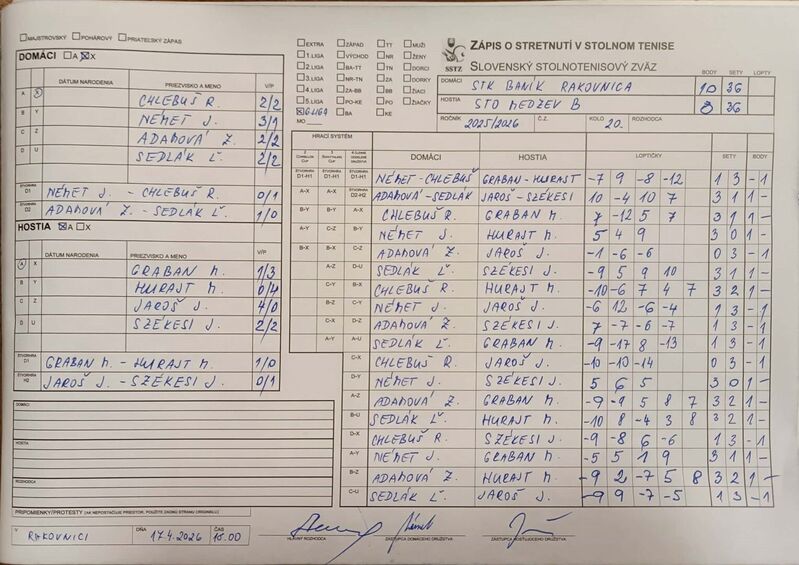 MAJSTROVSKÝ POHÁROVÝ PRIATEĽSKÝ ZÁPAS
DOMÁCI A X
DÁTUM NARODENIA PRIEZVISKO A MENO V/P
A X CHLEBUŠ R. 2/2
B Y NÉMET J. 3/1
C Z ADAMOVÁ Z. 2/2
D U SEDLÁK Ľ. 2/2
ŠTVORHRA D1 NÉMET J. - CHLEBUŠ R. 0/1
ŠTVORHRA D2 ADAMOVÁ Z. - SEDLÁK Ľ. 1/0
HOSTIA A X
DÁTUM NARODENIA PRIEZVISKO A MENO V/P
A X GRABAN M. 1/3
B Y HURAJT M. 0/4
C Z JAROŠ J. 4/0
D U SZÉKESI J. 2/2
ŠTVORHRA D1 GRABAN M. - HURAJT M. 1/0
ŠTVORHRA H2 JAROŠ J. - SZÉKESI J. 0/1
DOMÁCI
HOSTIA
ROZHODCA
PRIPOMIENKY/PROTESTY (AK NEPOSTAČUJE PRIESTOR, POUŽITE ZADNÚ STRANU ORIGINÁLU)
V RAKOVNICI DŇA 17.4.2026 ČAS 18.00
EXTRA ZÁPAD TT MUŽI
1.LIGA VÝCHOD NR ŽENY
2.LIGA BA-TT TN DORCI
3.LIGA NR-TN ZA DORKY
4.LIGA ZA-BB BB ŽIACI
5.LIGA PO-KE PO ŽIAČKY
6.LIGA BA KE
MO
SSTZ
ZÁPIS O STRETNUTÍ V STOLNOM TENISE
SLOVENSKÝ STOLNOTENISOVÝ ZVÄZ
BODY SETY LOPTY
DOMÁCI STK BANÍK RAKOVNICA 10 36
HOSTIA STO MEDZEV B 8 36
ROČNÍK 2025/2026 Č.Z. KOLO 20. ROZHODCA
HRACÍ SYSTÉM DOMÁCI HOSTIA LOPTIČKY SETY BODY
ŠTVORHRA D1-H1 ŠTVORHRA D1-H1 ŠTVORHRA D1-H1 NÉMET - CHLEBUŠ GRABAN - HURAJT -7 9 -8 -12 1 3 - 1
A-X A-X D2-H2 ADAMOVÁ - SEDLÁK JAROŠ - SZÉKESI 10 -4 10 7 3 1 1 -
B-Y B-Y A-X CHLEBUŠ R. GRABAN M. 7 -12 5 7 3 1 1 -
A-Y C-Z B-Y NÉMET J. HURAJT M. 5 4 9 3 0 1 -
B-X B-X C-Z ADAMOVÁ Z. JAROŠ J. -1 -6 -6 0 3 - 1
A-Z D-U SEDLÁK Ľ. SZÉKESI J. -9 5 9 10 3 1 1 -
C-Y B-X CHLEBUŠ R. HURAJT M. -10 -6 7 4 7 3 2 1 -
B-Z C-Y NÉMET J. JAROŠ J. -6 12 -6 -4 1 3 - 1
C-X D-Z ADAMOVÁ Z. SZÉKESI J. 7 -7 -6 -7 1 3 - 1
A-Y A-U SEDLÁK Ľ. GRABAN M. -9 -17 8 -13 1 3 - 1
C-X CHLEBUŠ R. JAROŠ J. -10 -10 -14 0 3 - 1
D-Y NÉMET J. SZÉKESI J. 5 6 5 3 0 1 -
A-Z ADAMOVÁ Z. GRABAN M. -9 -9 5 8 7 3 2 1 -
B-U SEDLÁK Ľ. HURAJT M. -10 8 -4 3 8 3 2 1 -
D-X CHLEBUŠ R. SZÉKESI J. -9 -8 6 -6 1 3 - 1
A-Y NÉMET J. GRABAN M. -5 5 1 9 3 1 1 -
B-Z ADAMOVÁ Z. HURAJT M. -9 2 -7 5 8 3 2 1 -
C-U SEDLÁK Ľ. JAROŠ J. -9 9 -7 -5 1 3 - 1
HLAVNÝ ROZHODCA ZÁSTUPCA DOMÁCEHO DRUŽSTVA ZÁSTUPCA HOSŤUJÚCEHO DRUŽSTVA